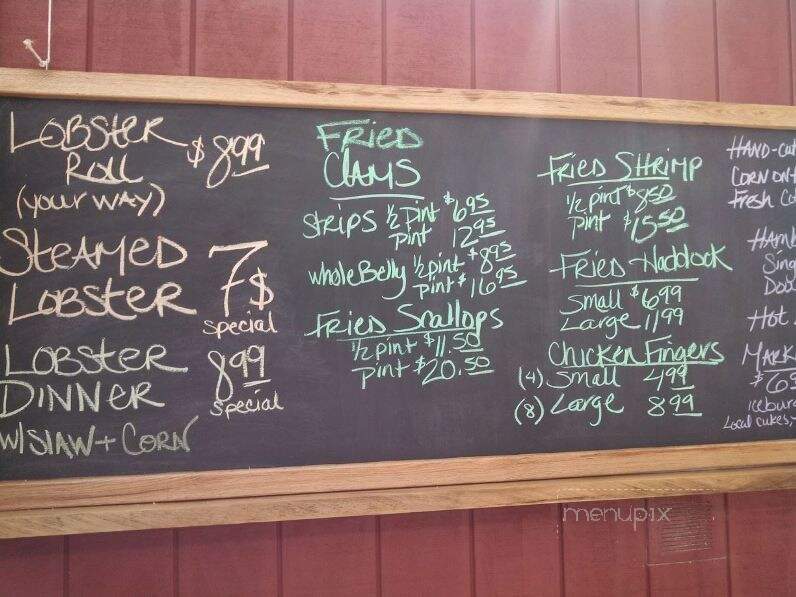 LOBSTER
ROLL $8.99
(YOUR WAY)
STEAMED
LOBSTER 7$
special
LOBSTER
DINNER 8.99
special
W/SLAW + CORN
FRIED
CLAMS
STRIPS 1/2 Pint $6.95
pint 12.95
whole Belly 1/2 pint $8.95
pint $16.95
Fried Scallops
1/2 pint $11.50
pint $20.50
FRIED SHRIMP
1/2 pint $8.50
pint $15.50
FRIED Haddock
Small $6.99
Large 11.99
Chicken Fingers
(4) Small 4.99
(8) Large 8.99
HAND-Cut
CORN ON
Fresh Co
Hamb
Sing
Dou
Hot
MARK
$6.9
Iceburg
Local cukes,
menupix